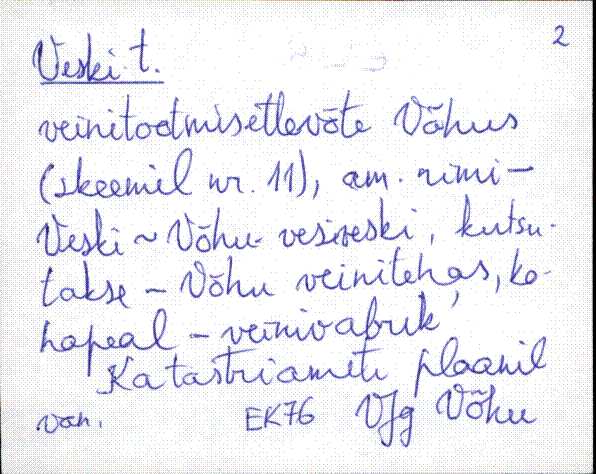 2
Veski t.
veinitootmisettevõte Võhus
(skeemil nr. 11), am. nimi –
Veski ~ Võhu vesiveski, kutsu-
takse – Võhu veinitehas, ko-
hapeal – veinivabrik
Katastriameti plaanil
van. EK76 VJg Võhu